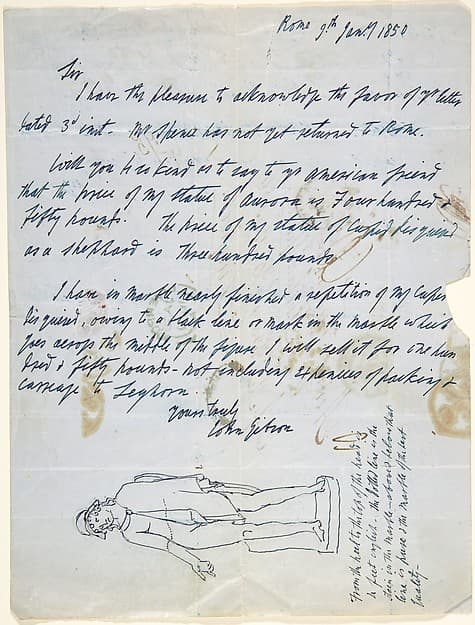 Rome 9th Jany 1850
Sir
I have the pleasure to acknowledge the favor of yr letter
dated 3d inst. Mr Spence has not yet returned to Rome.
Will you be so kind as to say to yr american friend
that the price of my statue of Aurora is Four hundred &
fifty pounds. The price of my statue of Cupid disguised
as a shephard is Three hundred pounds
I have in marble nearly finished a repetition of my Cupid
disguised, owing to a black line or mark in the marble which
goes across the middle of the figure I will sell it for one hun
dred & fifty pounds - not including expenses of packing &
carriage to Leghorn.
yours truly
John Gibson
From the heel to the top of the head is
feet english. the dotted line is the
stain in the marble - above & below that
line is pure & the marble of the best
quality -